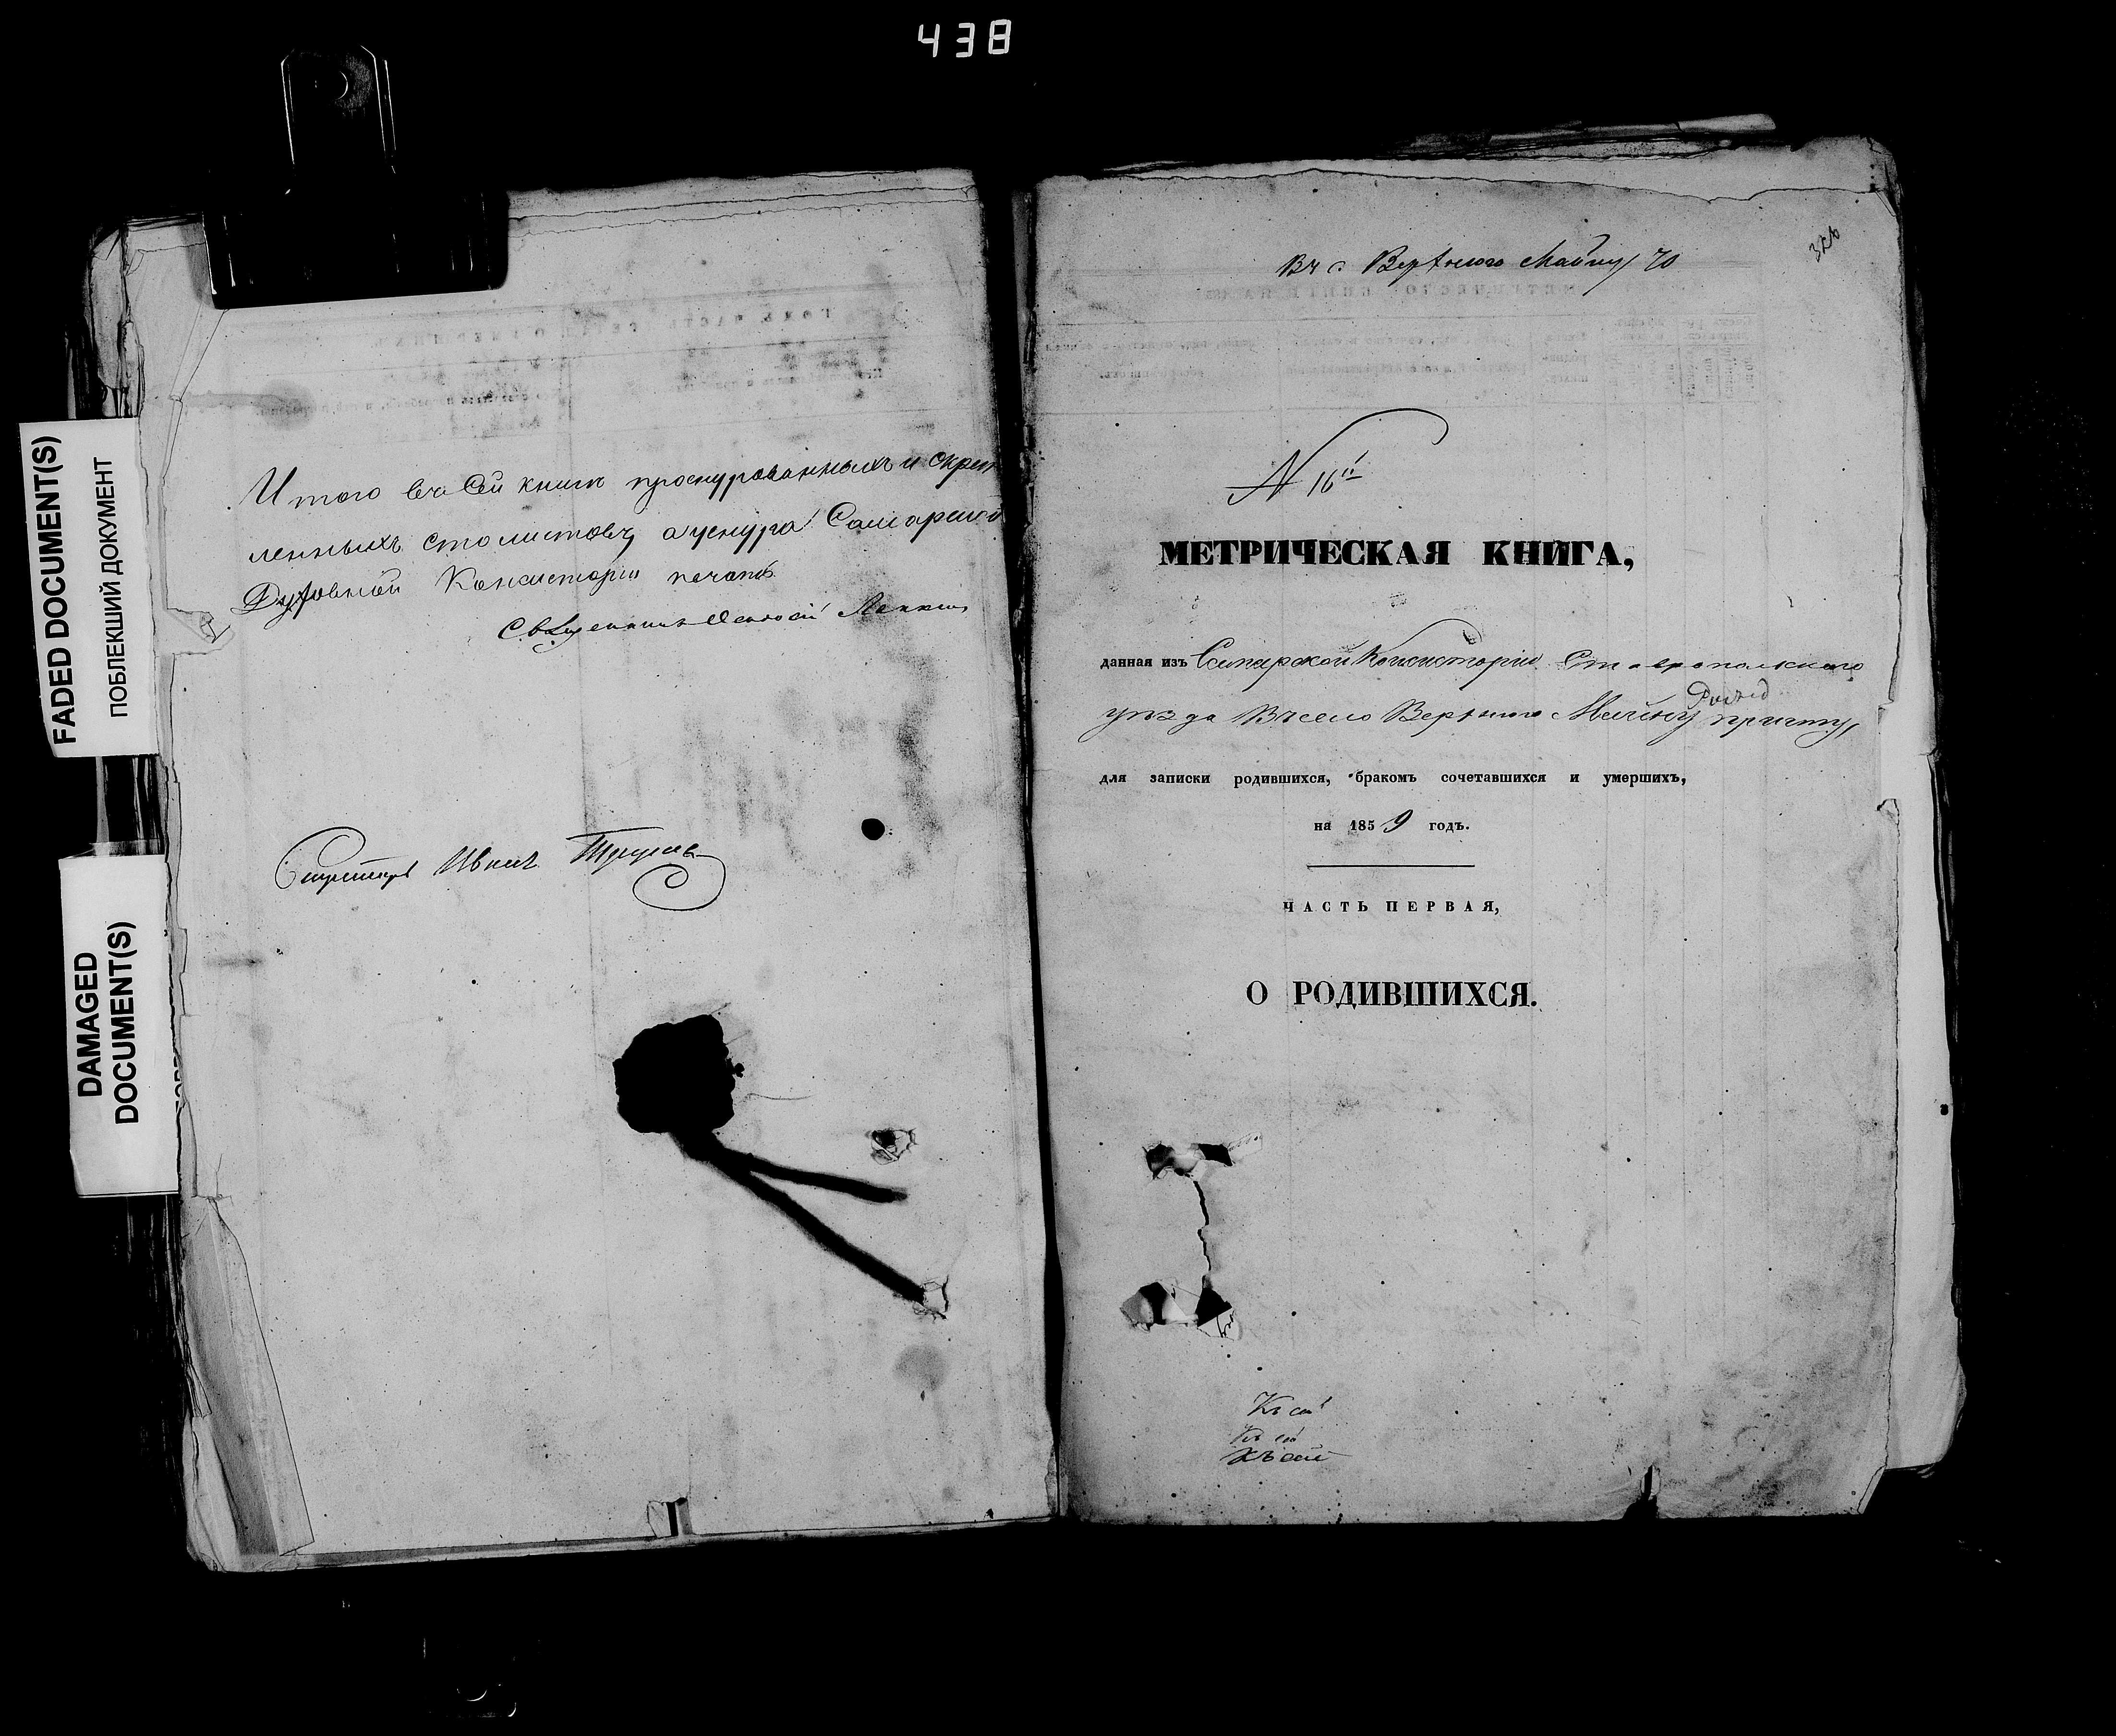 438
FADED DOCUMENT(S)
ПОБЛЕКШИЙ ДОКУМЕНТ
DAMAGED
DOCUMENT(S)
Итого въ сей книгѣ прошнурованныхъ и скрѣп
ленныхъ сто листовъ, а у шнура Самарской
Духовной Консисторіи печать
Священникъ
Секретарь Иванъ
Въ с. Верхнюю Майну 70
326
№ 16й
МЕТРИЧЕСКАЯ КНИГА,
данная изъ Самарской Консисторіи Ставропольскаго
уѣзда Въ село Верхнюю Майну причту,
для записки родившихся, бракомъ сочетавшихся и умершихъ,
на 1859 годъ.
ЧАСТЬ ПЕРВАЯ,
О РОДИВШИХСЯ.
Къ сей
Къ сей
Къ сей